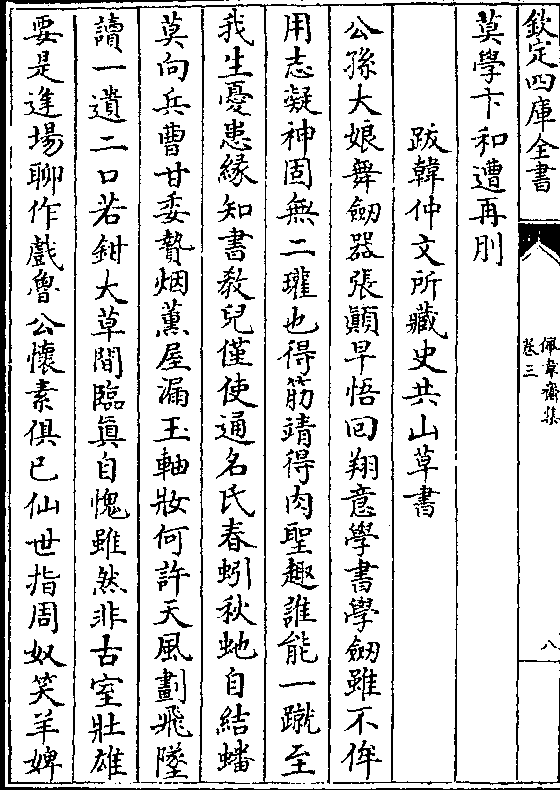 欽定四庫全書
佩韋齋集
卷三
八
莫學卞和遭再刖
跋韓仲文所藏史共山草書
公孫大娘舞劒器張顛早悟回翔意學書學劒雖不侔
用志凝神固無二瓘也得筋靖得肉聖趣誰能一蹴至
我生憂患緣知書教兒僅使通名氏春蚓秋虵自結蟠
莫向兵曹甘委贄烟薰屋漏玉軸妝何許天風劃飛墜
讀一遺二口若鉗大草間臨真自愧雖然非古室壯雄
要是逢場聊作戲魯公懷素俱已仙世指周奴笑羊婢